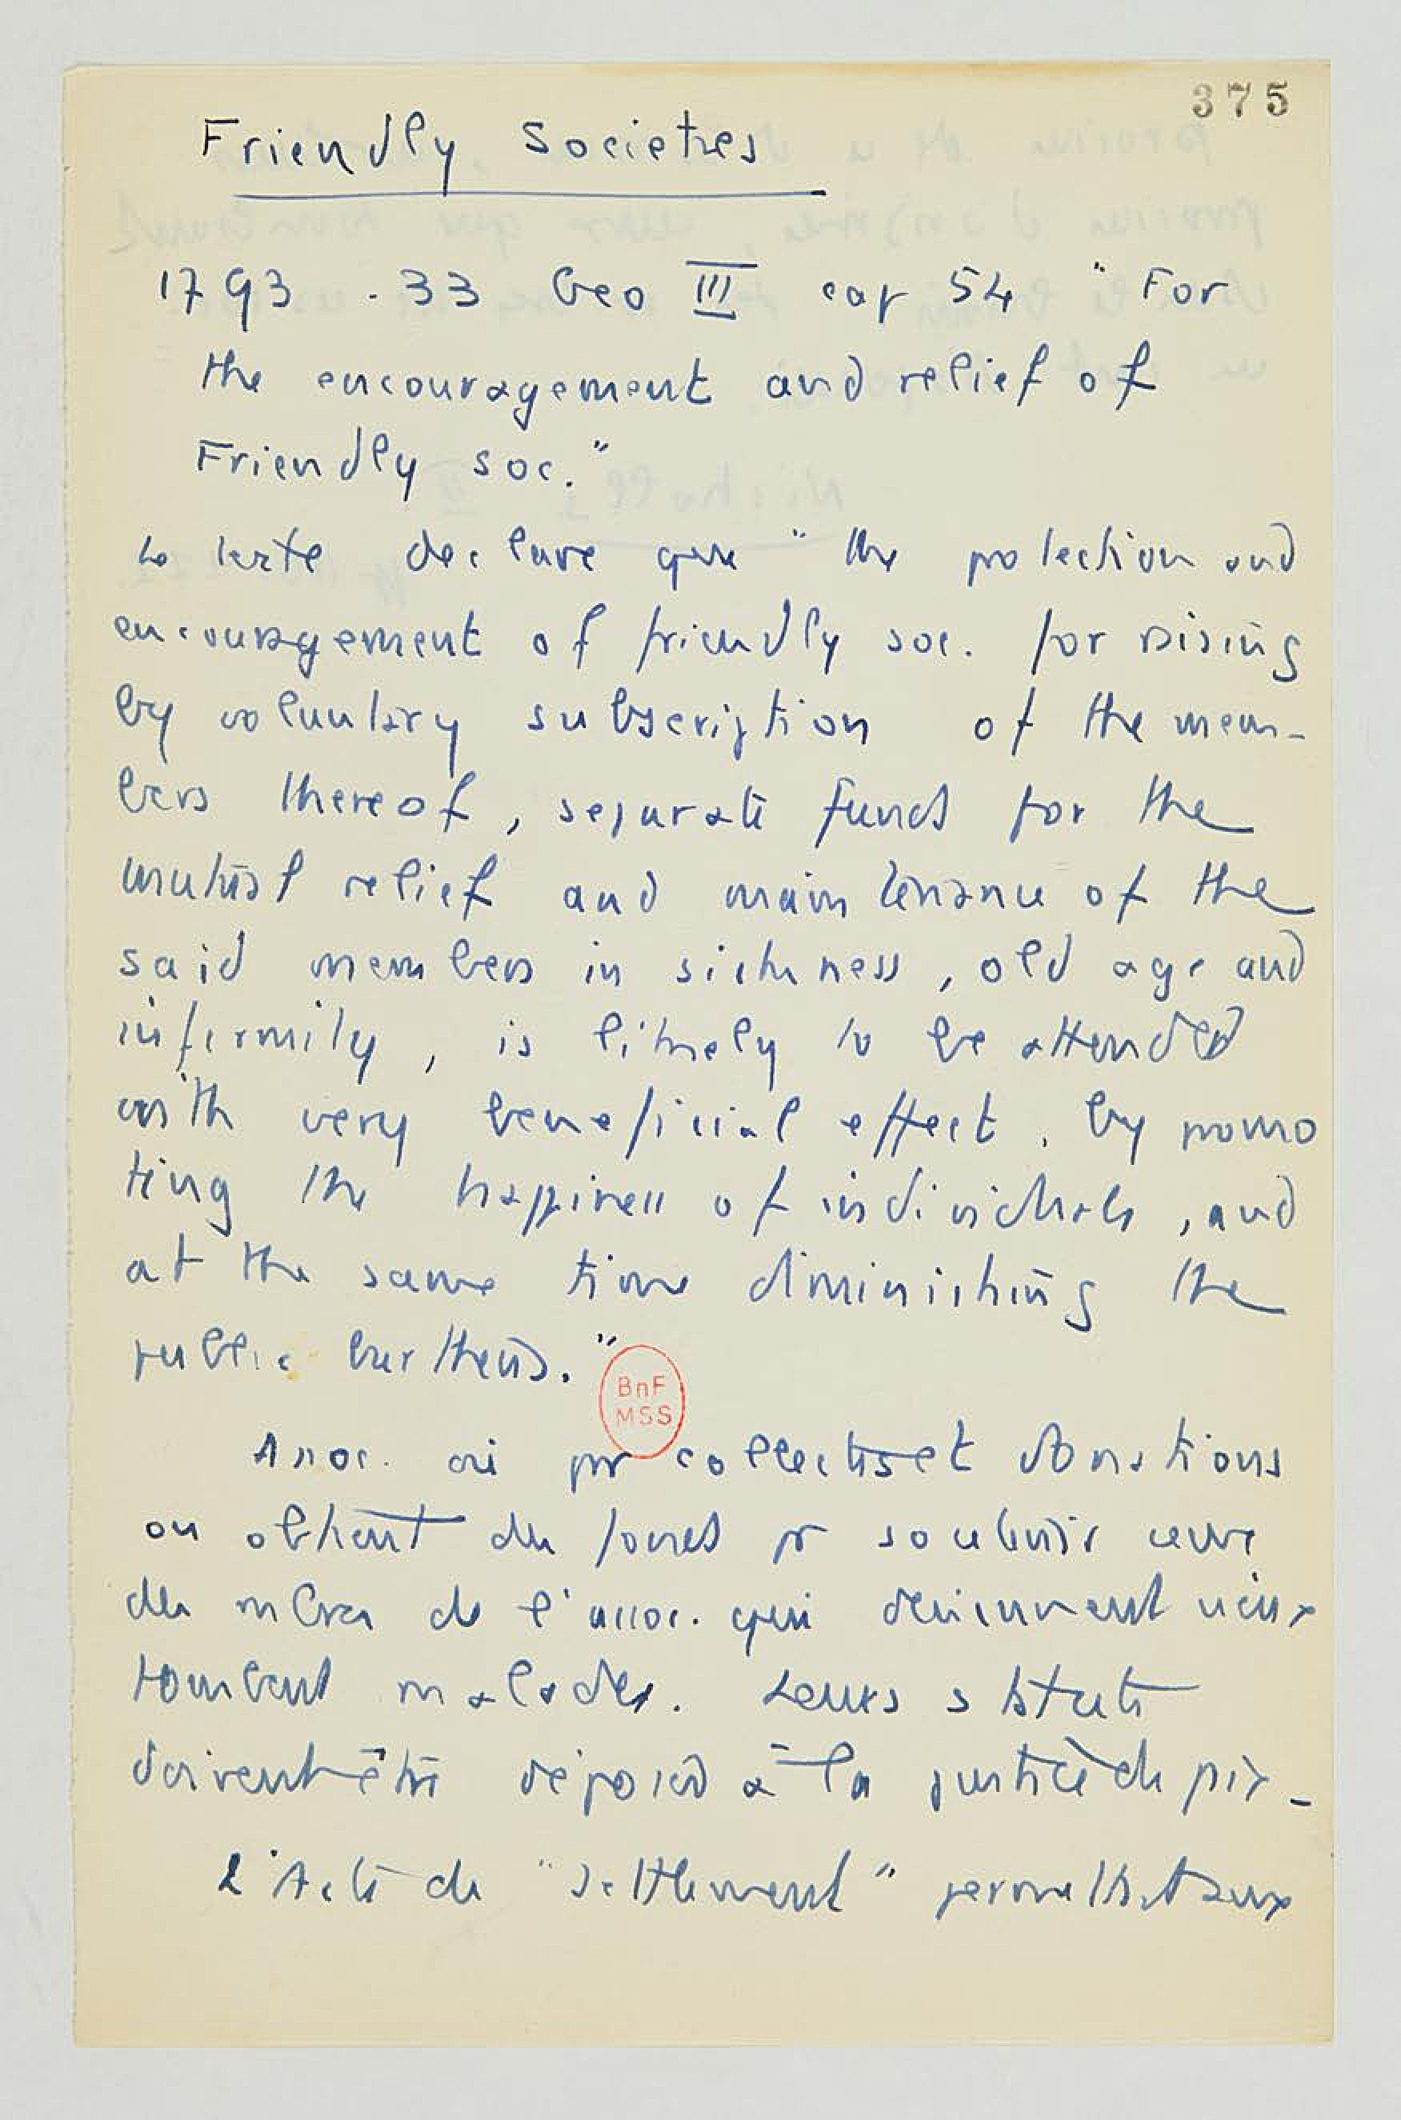 375
Friendly Societies
1793 . 33 Geo III cap 54 "For
the encouragement and relief of
Friendly soc."
Le texte déclare que "the protection and
encouragement of friendly soc. for raising
by voluntary subscription of the mem-
bers thereof, separate funds for the
mutual relief and maintenance of the
said members in sickness, old age and
infirmity, is likely to be attended
with very beneficial effect, by promo
ting the happiness of individuals, and
at the same time diminishing the
public burthens."
BnF
MSS
Assoc. où par collectes et donations
on obtient des fonds pr soutenir ceux
des mbres de l'assoc. qui deviennent vieux
tombent malades. Leurs statuts
doivent être déposés à la justice de paix -
L'Acte de "Settlement" permettait aux